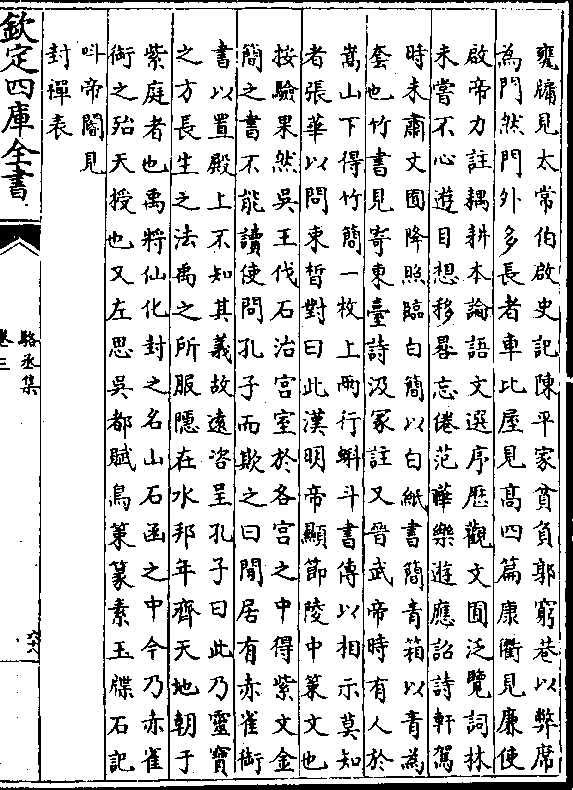 甕牖見太常伯啟史記陳平家貧負郭窮巷以弊席
為門然門外多長者車比屋見髙四篇康衢見廉使
啟帝力註耦耕本論語文選序歴觀文囿泛覽詞林
未嘗不心遊目想移晷忘倦范曄樂遊應詔詩軒駕
時未肅文囿降照臨白簡以白紙書簡青箱以青為
套也竹書見寄東臺詩汲冢註又晉武帝時有人於
嵩山下得竹簡一枚上兩行蝌斗書傳以相示莫知
者張華以問束晳對曰此漢明帝顯節陵中策文也
按驗果然吳王伐石治宫室於各宫之中得紫文金
簡之書不能讀使問孔子而欺之曰閒居有赤雀銜
書以置殿上不知其義故遠咨呈孔子曰此乃靈寳
之方長生之法禹之所服隱在水邦年齊天地朝于
紫庭者也禹將仙化封之名山石函之中今乃赤雀
銜之殆天授也又左思吳都賦鳥策篆素玉牒石記
叫帝閽見
封禪表
欽定四庫全書
駱丞集
卷三